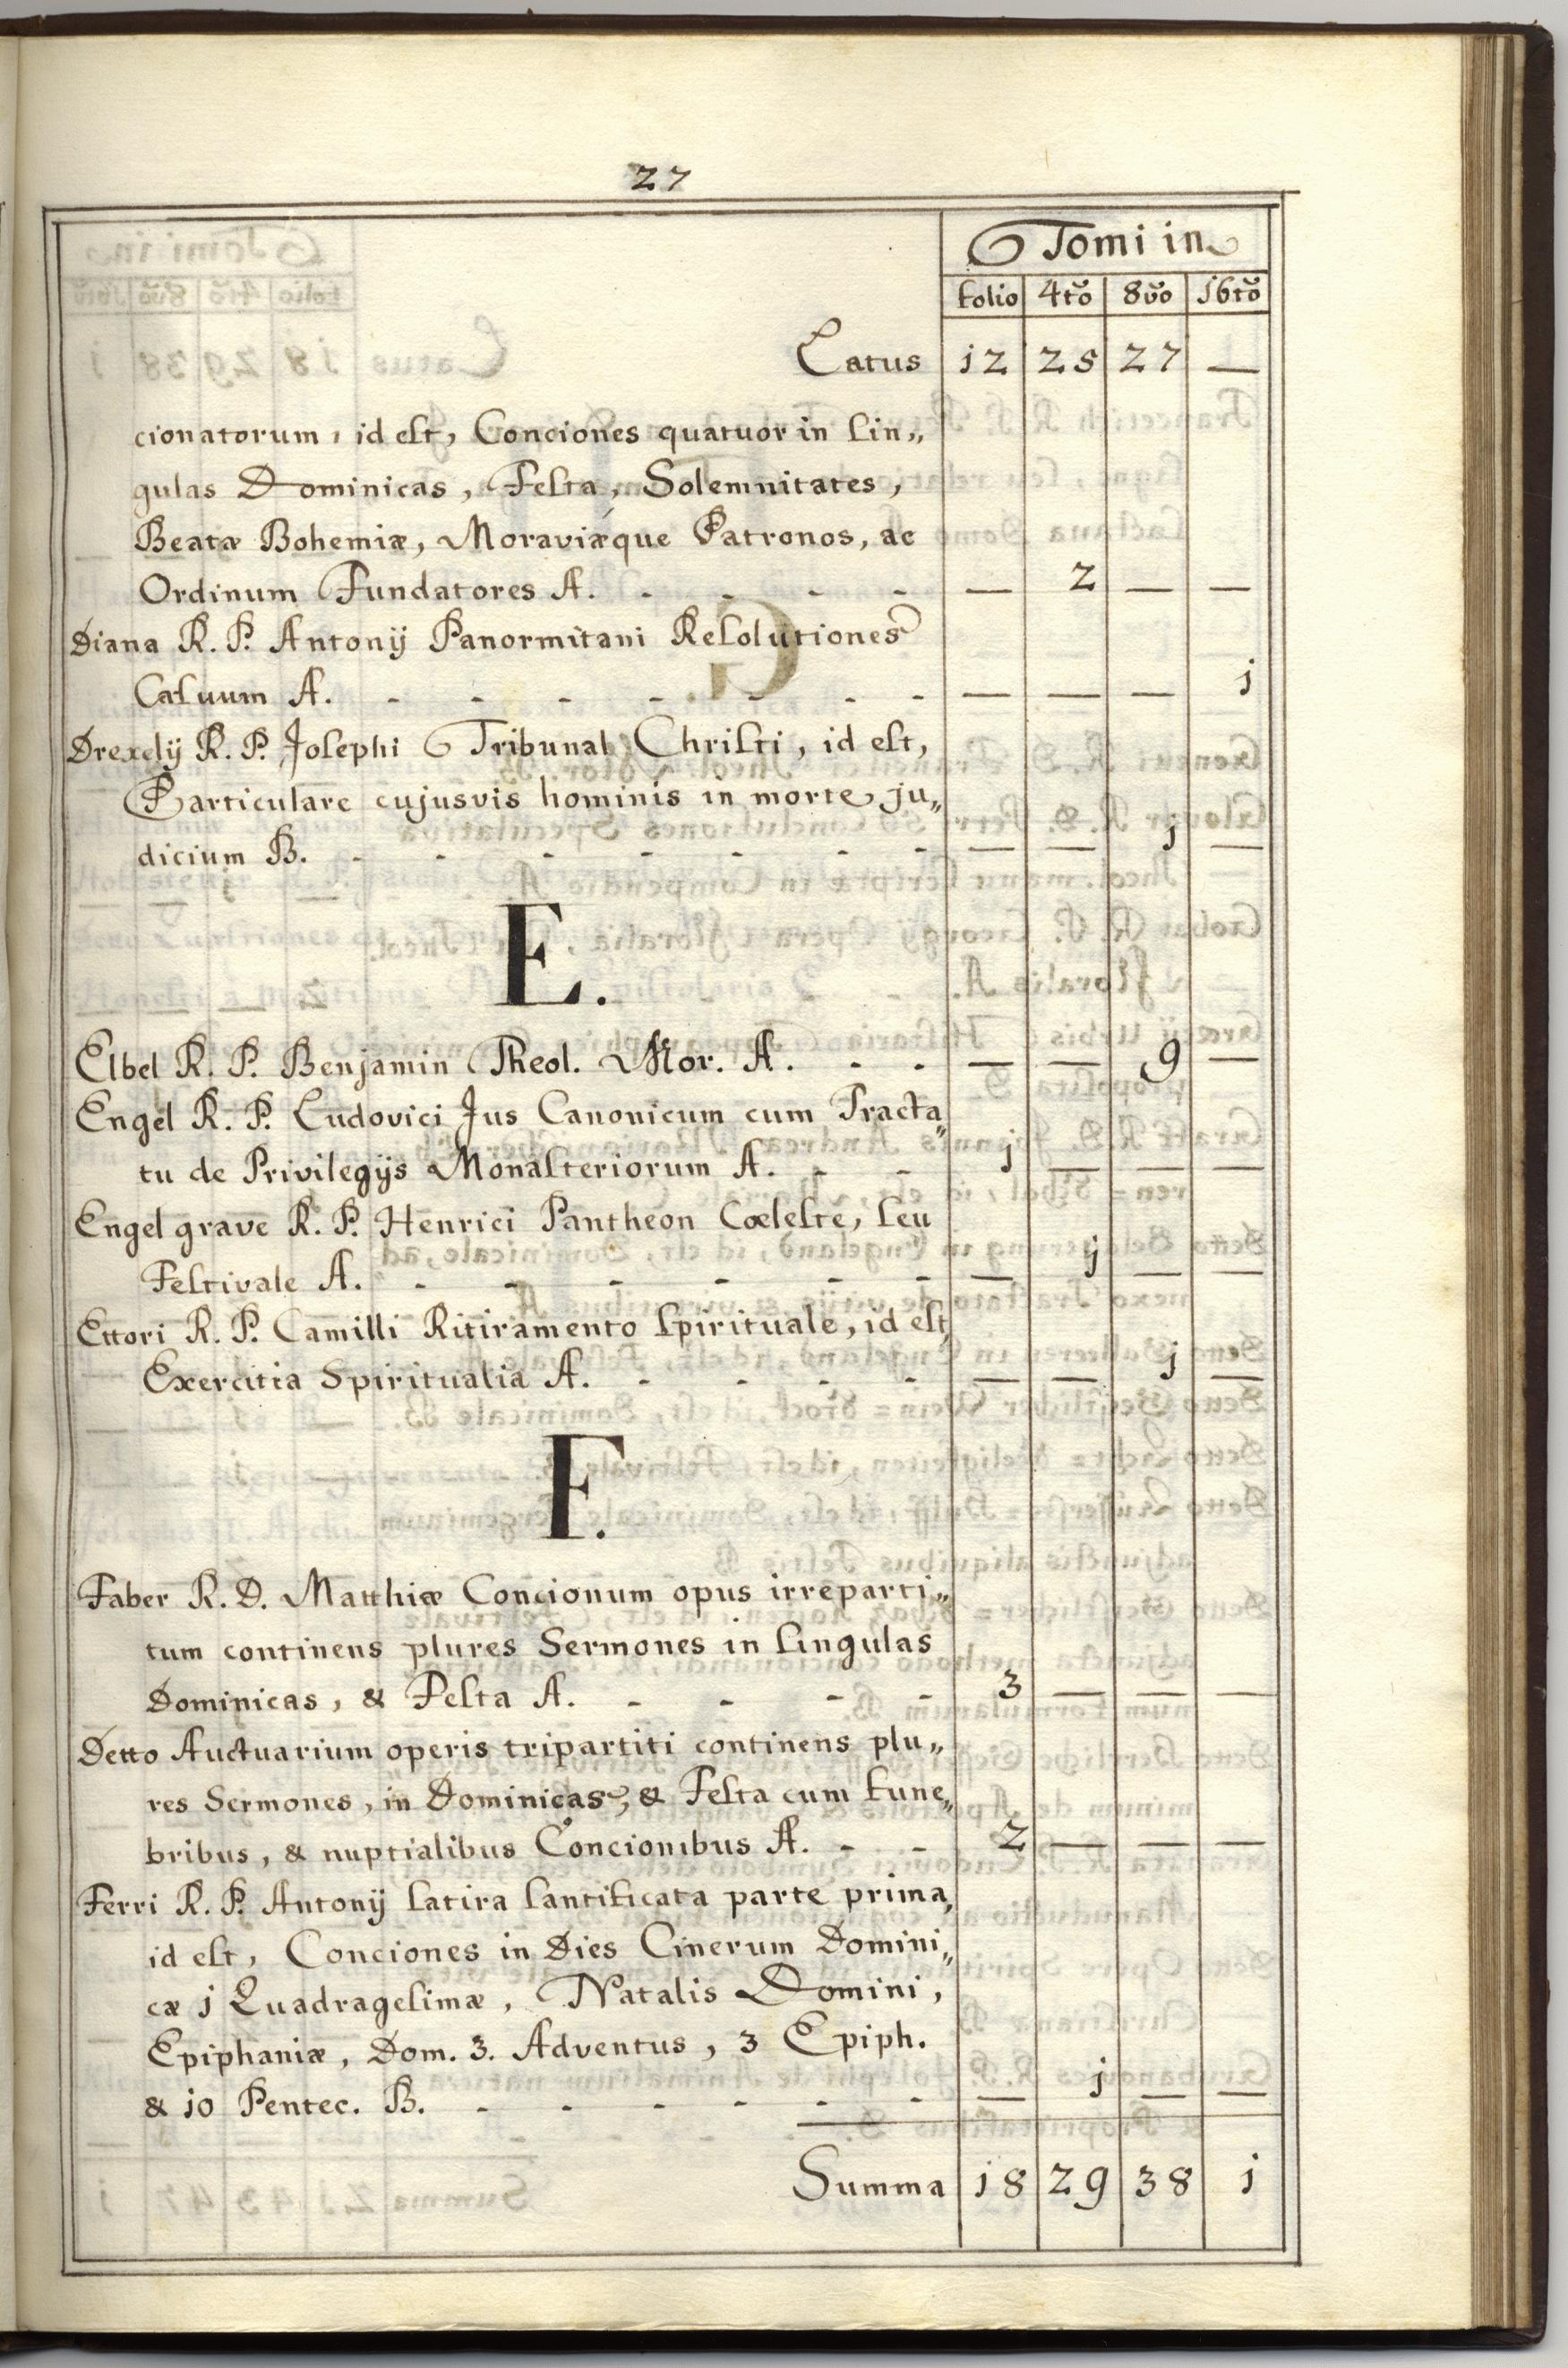 27
Tomi in
folio 4to 8vo 16to
Latus 12 25 27 —
cionatorum, id eſt, Conciones quatuor in ſin„
gulas Dominicas, Feſta, Solemnitates,
Beatæ Bohemiæ, Moraviæque Patronos, ac
Ordinum Fundatores A. - - - - — 2 — —
Diana R. P. Antonij Panormitani Reſolutiones
Caſuum A. - - - - - - - — — — j
Drexelij R. P. Joſephi Tribunal Chriſti, id eſt,
Particulare cujusvis hominis in morte ju„
dicium B. - - - - - - - — — j —
E.
Elbel R. P. Benjamin Theol. Mor. A. - - — — 9 —
Engel R. P. Ludovici Jus Canonicum cum Tracta„
tu de Privilegijs Monaſteriorum A. - - j — — —
Engelgrave R. P. Henrici Pantheon Cœleſte, ſeu
Feſtivale A. - - - - - - — j — —
Ettori R. P. Camilli Ritiramento ſpirituale, id eſt,
Exercitia Spiritualia A. - - - - — — j —
F.
Faber R. D. Matthiæ Concionum opus irreparti„
tum continens plures Sermones in ſingulas
Dominicas, & Feſta A. - - - - 3 — — —
Detto Auctuarium operis tripartiti continens plu„
res Sermones, in Dominicas, & Feſta cum fune„
bribus, & nuptialibus Concionibus A. - - 2 — — —
Ferri R. P. Antonij ſatira ſantificata parte prima,
id eſt, Conciones in Dies Cinerum Domini„
cæ j Quadrageſimæ, Natalis Domini,
Epiphaniæ, Dom. 3. Adventus, 3 Epiph.
& j0 Pentec. B. - - - - - - — j — —
Summa j8 29 38 j